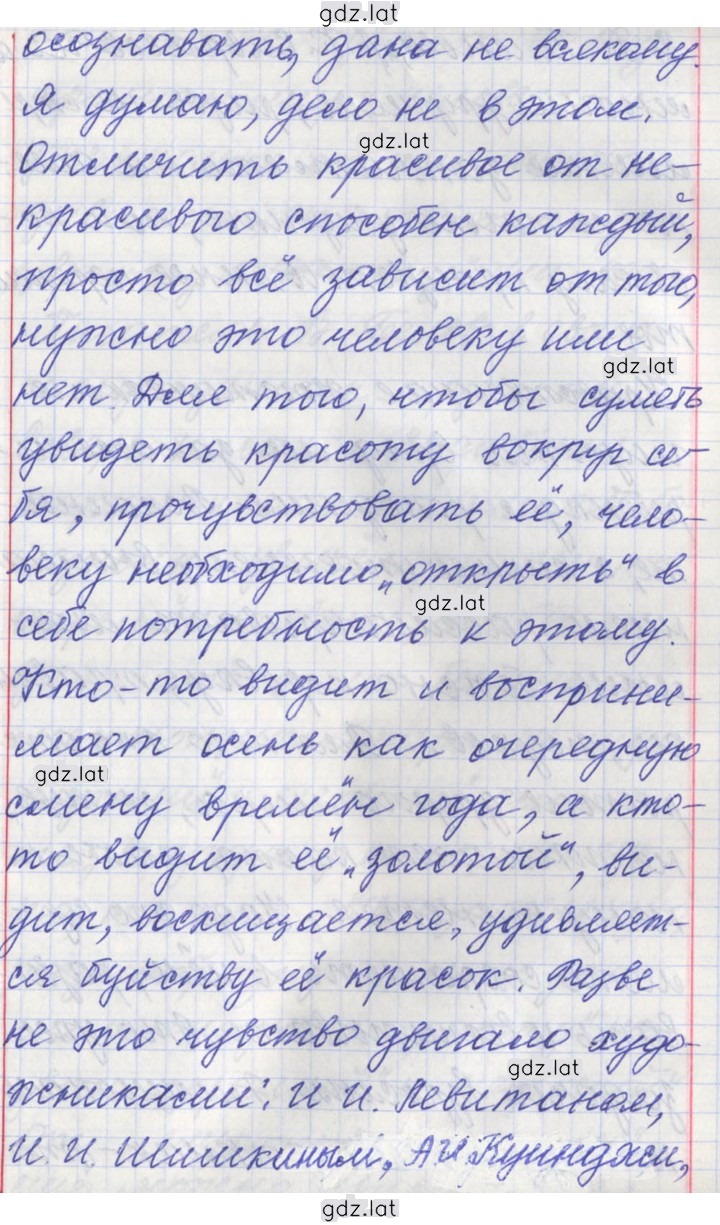 gdz.lat
осознавать, дана не всякому.
Я думаю, дело не в этом.
gdz.lat
Отличить красивое от не-
красивого способен каждый,
просто всё зависит от того,
нужно это человеку или
gdz.lat
нет. Для того, чтобы суметь
увидеть красоту вокруг се-
бя, прочувствовать её, чело-
веку необходимо „открыть“ в
gdz.lat
себе потребность к этому.
Кто-то видит и восприни-
мает осень как очередную
gdz.lat
смену времён года, а кто-
то видит её „золотой“, ви-
дит, восхищается, удивляет-
ся буйству её красок. Разве
не это чувство двигало худо-
gdz.lat
жниками: И. И. Левитаном,
И. И. Шишкиным, А И Куинджи,
gdz.lat